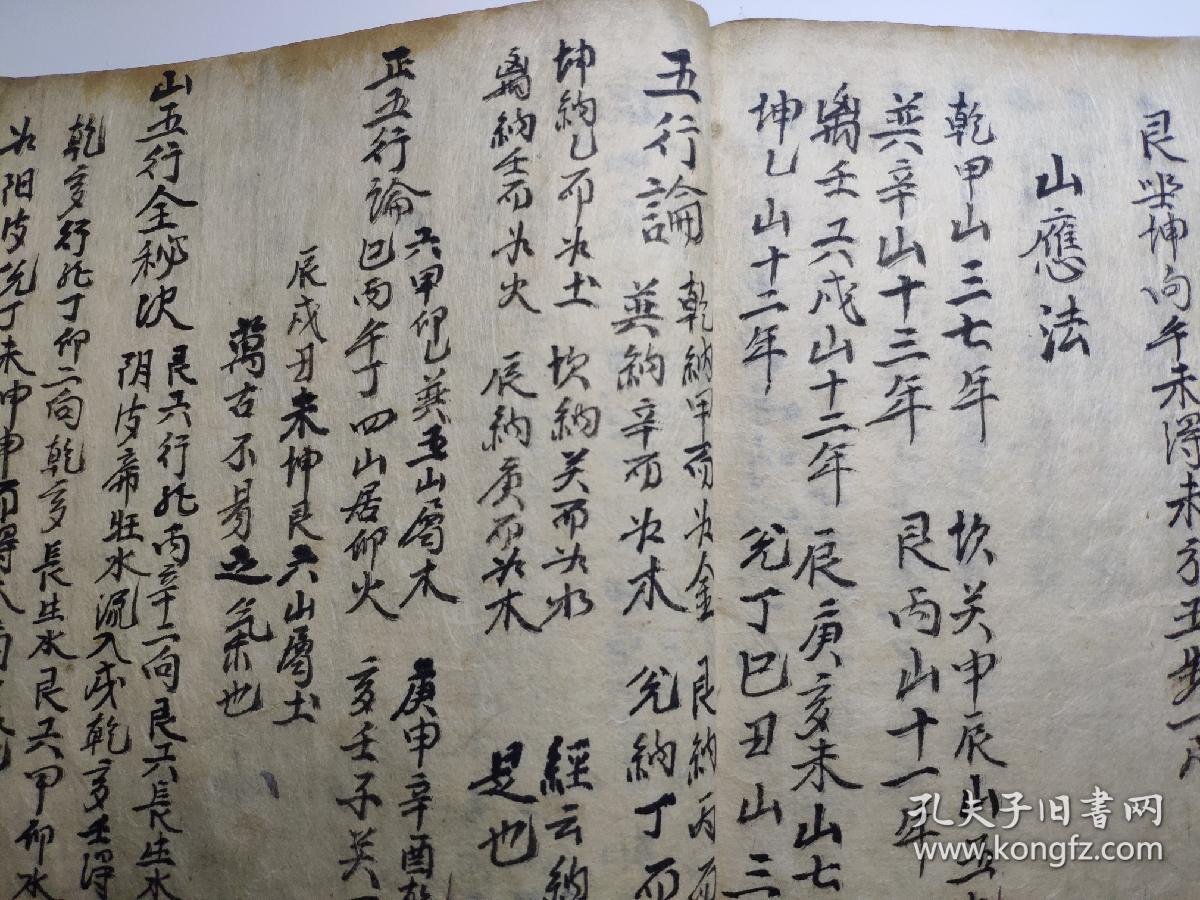 艮坐坤向午未得未方
山應法
乾甲山三七年 坎癸申辰山五
巽辛山十三年 艮丙山十一年
離壬寅戌山十二年 辰庚亥未山七
坤乙山十二年 兊丁巳丑山三
五行論 乾納甲而为金 艮納丙而
巽納辛而为木 兊納丁而
坤納乙而为土 坎納癸而为水 經云納
離納壬而为火 辰納庚而为木 是也
正五行論 寅甲卯乙巽五山屬木 庚申辛酉乾
巳丙午丁四山居仰火 亥壬子癸
辰戌丑未坤艮六山屬土
萬古不易之氣也
山五行全秘决 艮寅行龙丙辛二向艮寅長生水
阴水帝旺水流入戌乾亥壬得
乾亥行龙丁卯二向乾亥長生水艮寅甲卯水
为阳 兊丁未申
孔夫子旧书网
www.kongfz.com